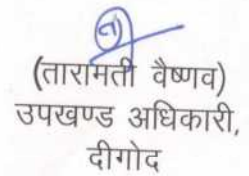 (तारामती वैष्णव)
उपखण्ड अधिकारी,
दीगोद